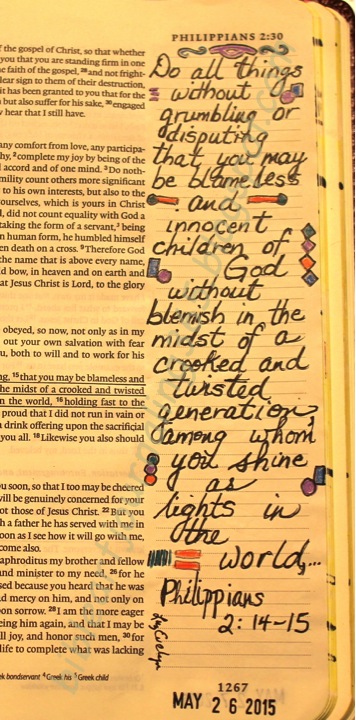 PHILIPPIANS 2:30
f the gospel of Christ, so that whether
you that you are standing firm in one
e faith of the gospel, 28 and not fright-
lear sign to them of their destruction,
it has been granted to you that for the
but also suffer for his sake, 30 engaged
hear that I still have.
any comfort from love, any participa-
hy, 2 complete my joy by being of the
l accord and of one mind. 3 Do noth-
mility count others more significant
to his own interests, but also to the
ourselves, which is yours in Christ
, did not count equality with God a
taking the form of a servant, being
n human form, he humbled himself
en death on a cross. 9 Therefore God
the name that is above every name,
d bow, in heaven and on earth and
at Jesus Christ is Lord, to the glory
obeyed, so now, not only as in my
out your own salvation with fear
u, both to will and to work for his
ng, 15 that you may be blameless and
the midst of a crooked and twisted
n the world, 16 holding fast to the
proud that I did not run in vain or
a drink offering upon the sacrificial
you all. 18 Likewise you also should
ou soon, so that I too may be cheered
will be genuinely concerned for your
ot those of Jesus Christ. 22 But you
h a father he has served with me in
oon as I see how it will go with me,
come also.
aphroditus my brother and fellow
and minister to my need, 26 for he
sed because you heard that he was
d mercy on him, and not only on
on sorrow. 28 I am the more eager
eing him again, and that I may be
ll joy, and honor such men, 30 for
life to complete what was lacking
ek bondservant 4 Greek his 5 Greek child
Do all things
without
grumbling or
disputing
that you may
be blameless
and
innocent
children of
God
without
blemish in the
midst of a
crooked and
twisted
generation,
among whom
you shine
as
lights in
the
world,...
Philippians
2:14-15
1267
MAY 26 2015